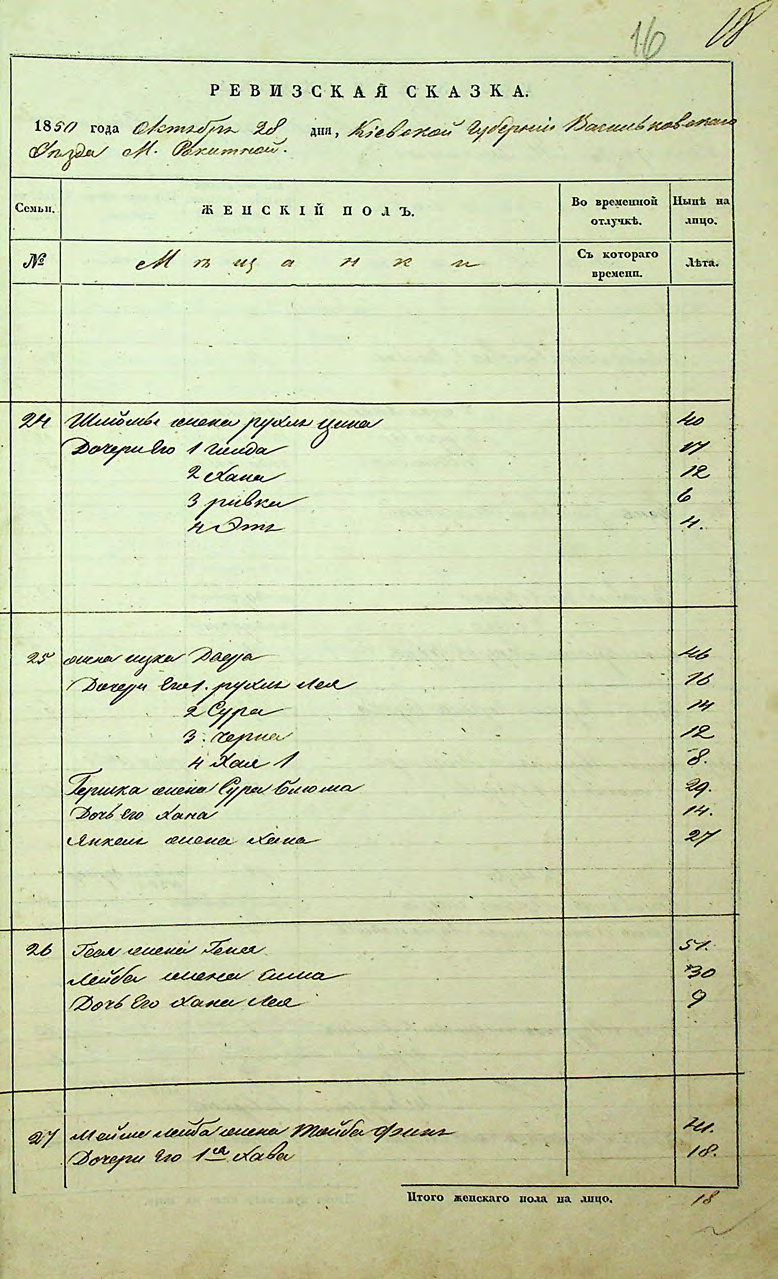 16 18
РЕВИЗСКАЯ СКАЗКА.
1850 года Октября 28 дня, Кіевской Губерніи Васильковскаго
Уѣзда М. Ракитной.
Семьи. ЖЕНСКІЙ ПОЛЪ. Во временной отлучкѣ. Нынѣ на лицо.
№ Мѣщанки Съ котораго времени. Лѣта.
24 Шліомы жена рухль цина 40
Дочери Его 1 Гинда 17
2 Хана 12
3 ривка 6
4 Эты 4.
25 жена ицка Двера 46
Дочери Его 1. рухль Лея 16
2 Сура 14
3. Черна 12
4 Хая 1 8.
Гершка жена Сура Блюма 29.
Дочь Его Хана 14.
Янкель жена Хана 27
26 жена Геня 51.
Лейба жена Сима 30
Дочь Его Хана Лея 9
27 Мойше лейба жена Тойба 41.
Дочери Его 1ая Хава 18.
Итого женскаго пола на лицо. 18